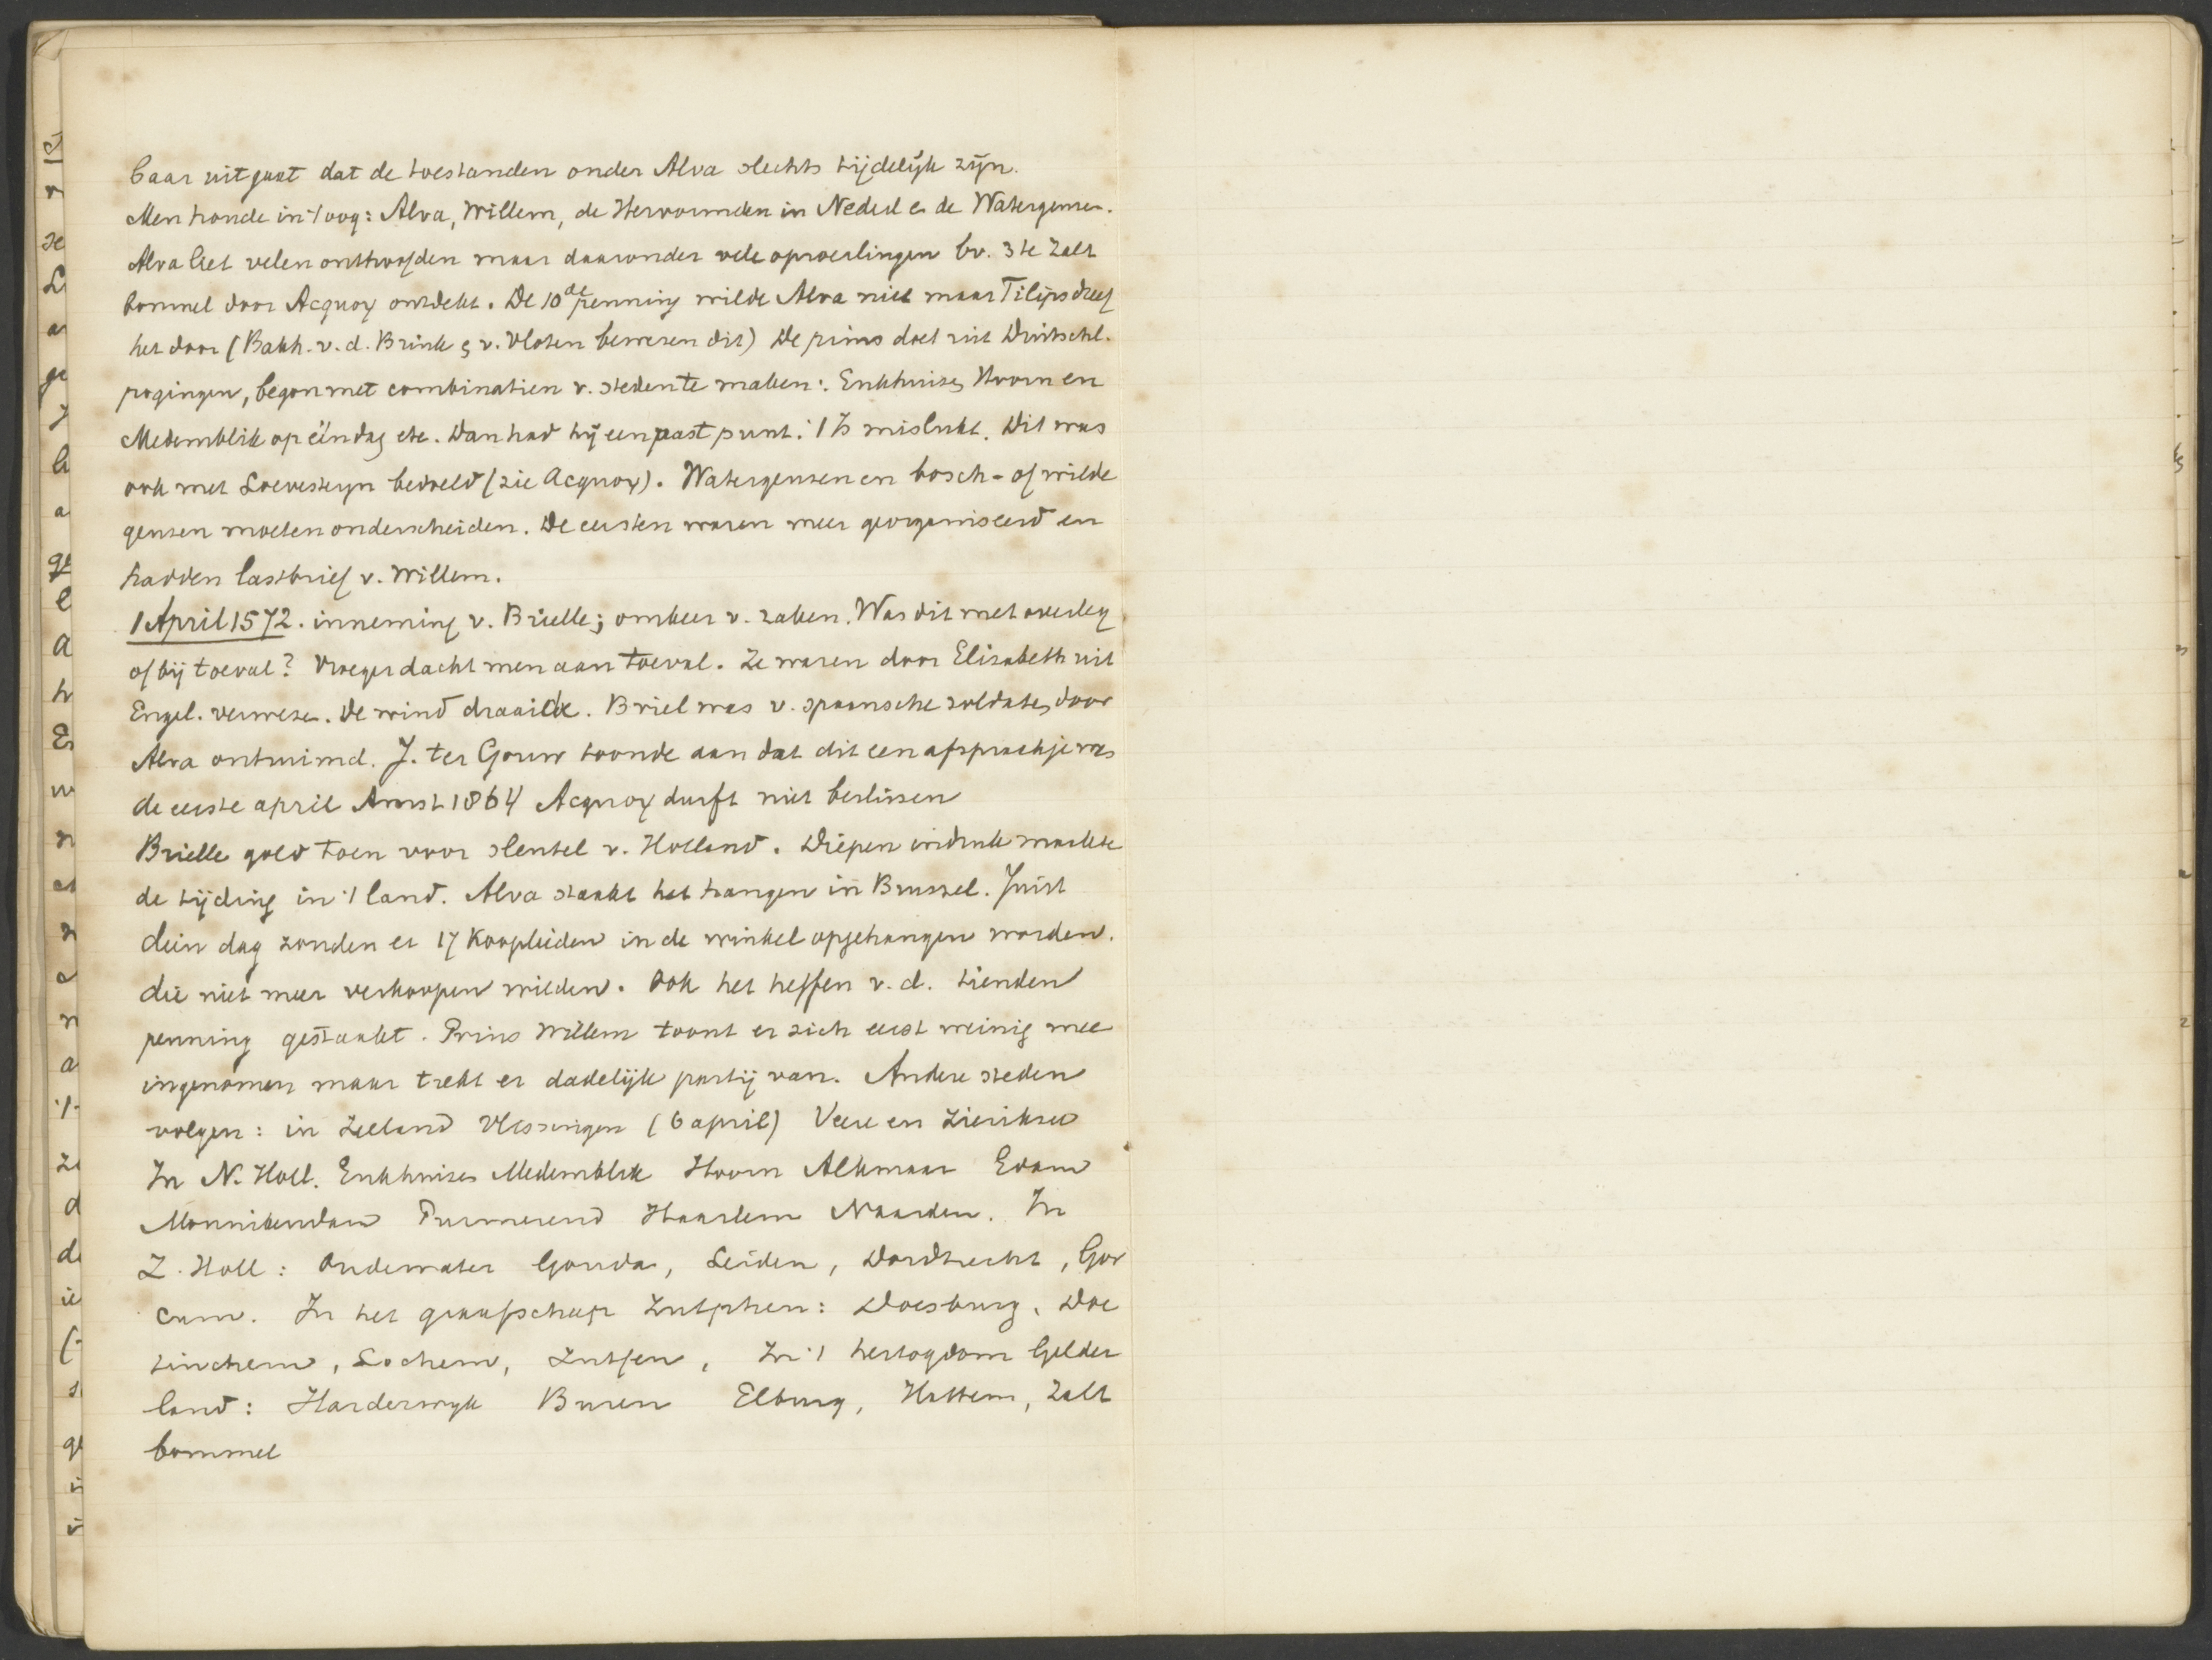 baar uitgaat dat de toestanden onder Alva slechts tijdelijk zijn.
Men houde in 't oog: Alva, Willem, de Hervormden in Nederl en de Watergeuzen.
Alva liet velen onthoofden maar daaronder vele oproerlingen bv. 3 te Zalt
bommel door Acquoy ontdekt. De 10de penning wilde Alva niet maar Filips dreef
het door (Bakh. v. d. Brink en v. Vloten bewezen dit) De prins doet uit Duitschl.
pogingen, begon met combinatien v. steden te maken: Enkhuizen Hoorn en
Medemblik op één dag etc. Dan had hij een vast punt. 't Is mislukt. Dit was
ook met Loevesteyn bedoeld (zie Acquoy). Watergeuzen en bosch- of wilde
geuzen moeten onderscheiden. De eersten waren meer georganiseerd en
hadden lastbrief v. Willem.
1 April 1572. inneming v. Brielle; omkeer v. zaken. Was dit met overleg
of bij toeval? Vroeger dacht men aan toeval. Ze waren door Elizabeth uit
Engel. verwezen. De wind draaide. Briel was v. spaansche soldaten door
Alva ontruimd. J. ter Gouw toonde aan dat dit een afspraakje was
de eerste april Amst 1864 Acquoy durft niet beslissen
Brielle gold toen voor sleutel v. Holland. Diepen indruk maakte
de tijding in 't land. Alva staakt het hangen in Brussel. Juist
dien dag zouden er 17 Kooplieden in de winkel opgehangen worden.
die niet meer verkoopen wilden. Ook het heffen v. d. tienden
penning gestaakt. Prins Willem toont er zich eerst weinig mee
ingenomen maar trekt er dadelijk partij van. Andere steden
volgen: in Zeeland Vlissingen (6 april) Veere en Zieriksee
In N. Holl. Enkhuizen Medemblik Hoorn Alkmaar Edam
Monnikendam Purmerend Haarlem Naarden. In
Z. Holl: Oudewater Gouda, Leiden, Dordrecht, Gor
cum. In het graafschap Zutphen: Doesburg, Doe
tinchem, Lochem, Zutfen, In 't hertogdom Gelder
land: Harderwyk Buren Elburg, Hattem, Zalt
bommel